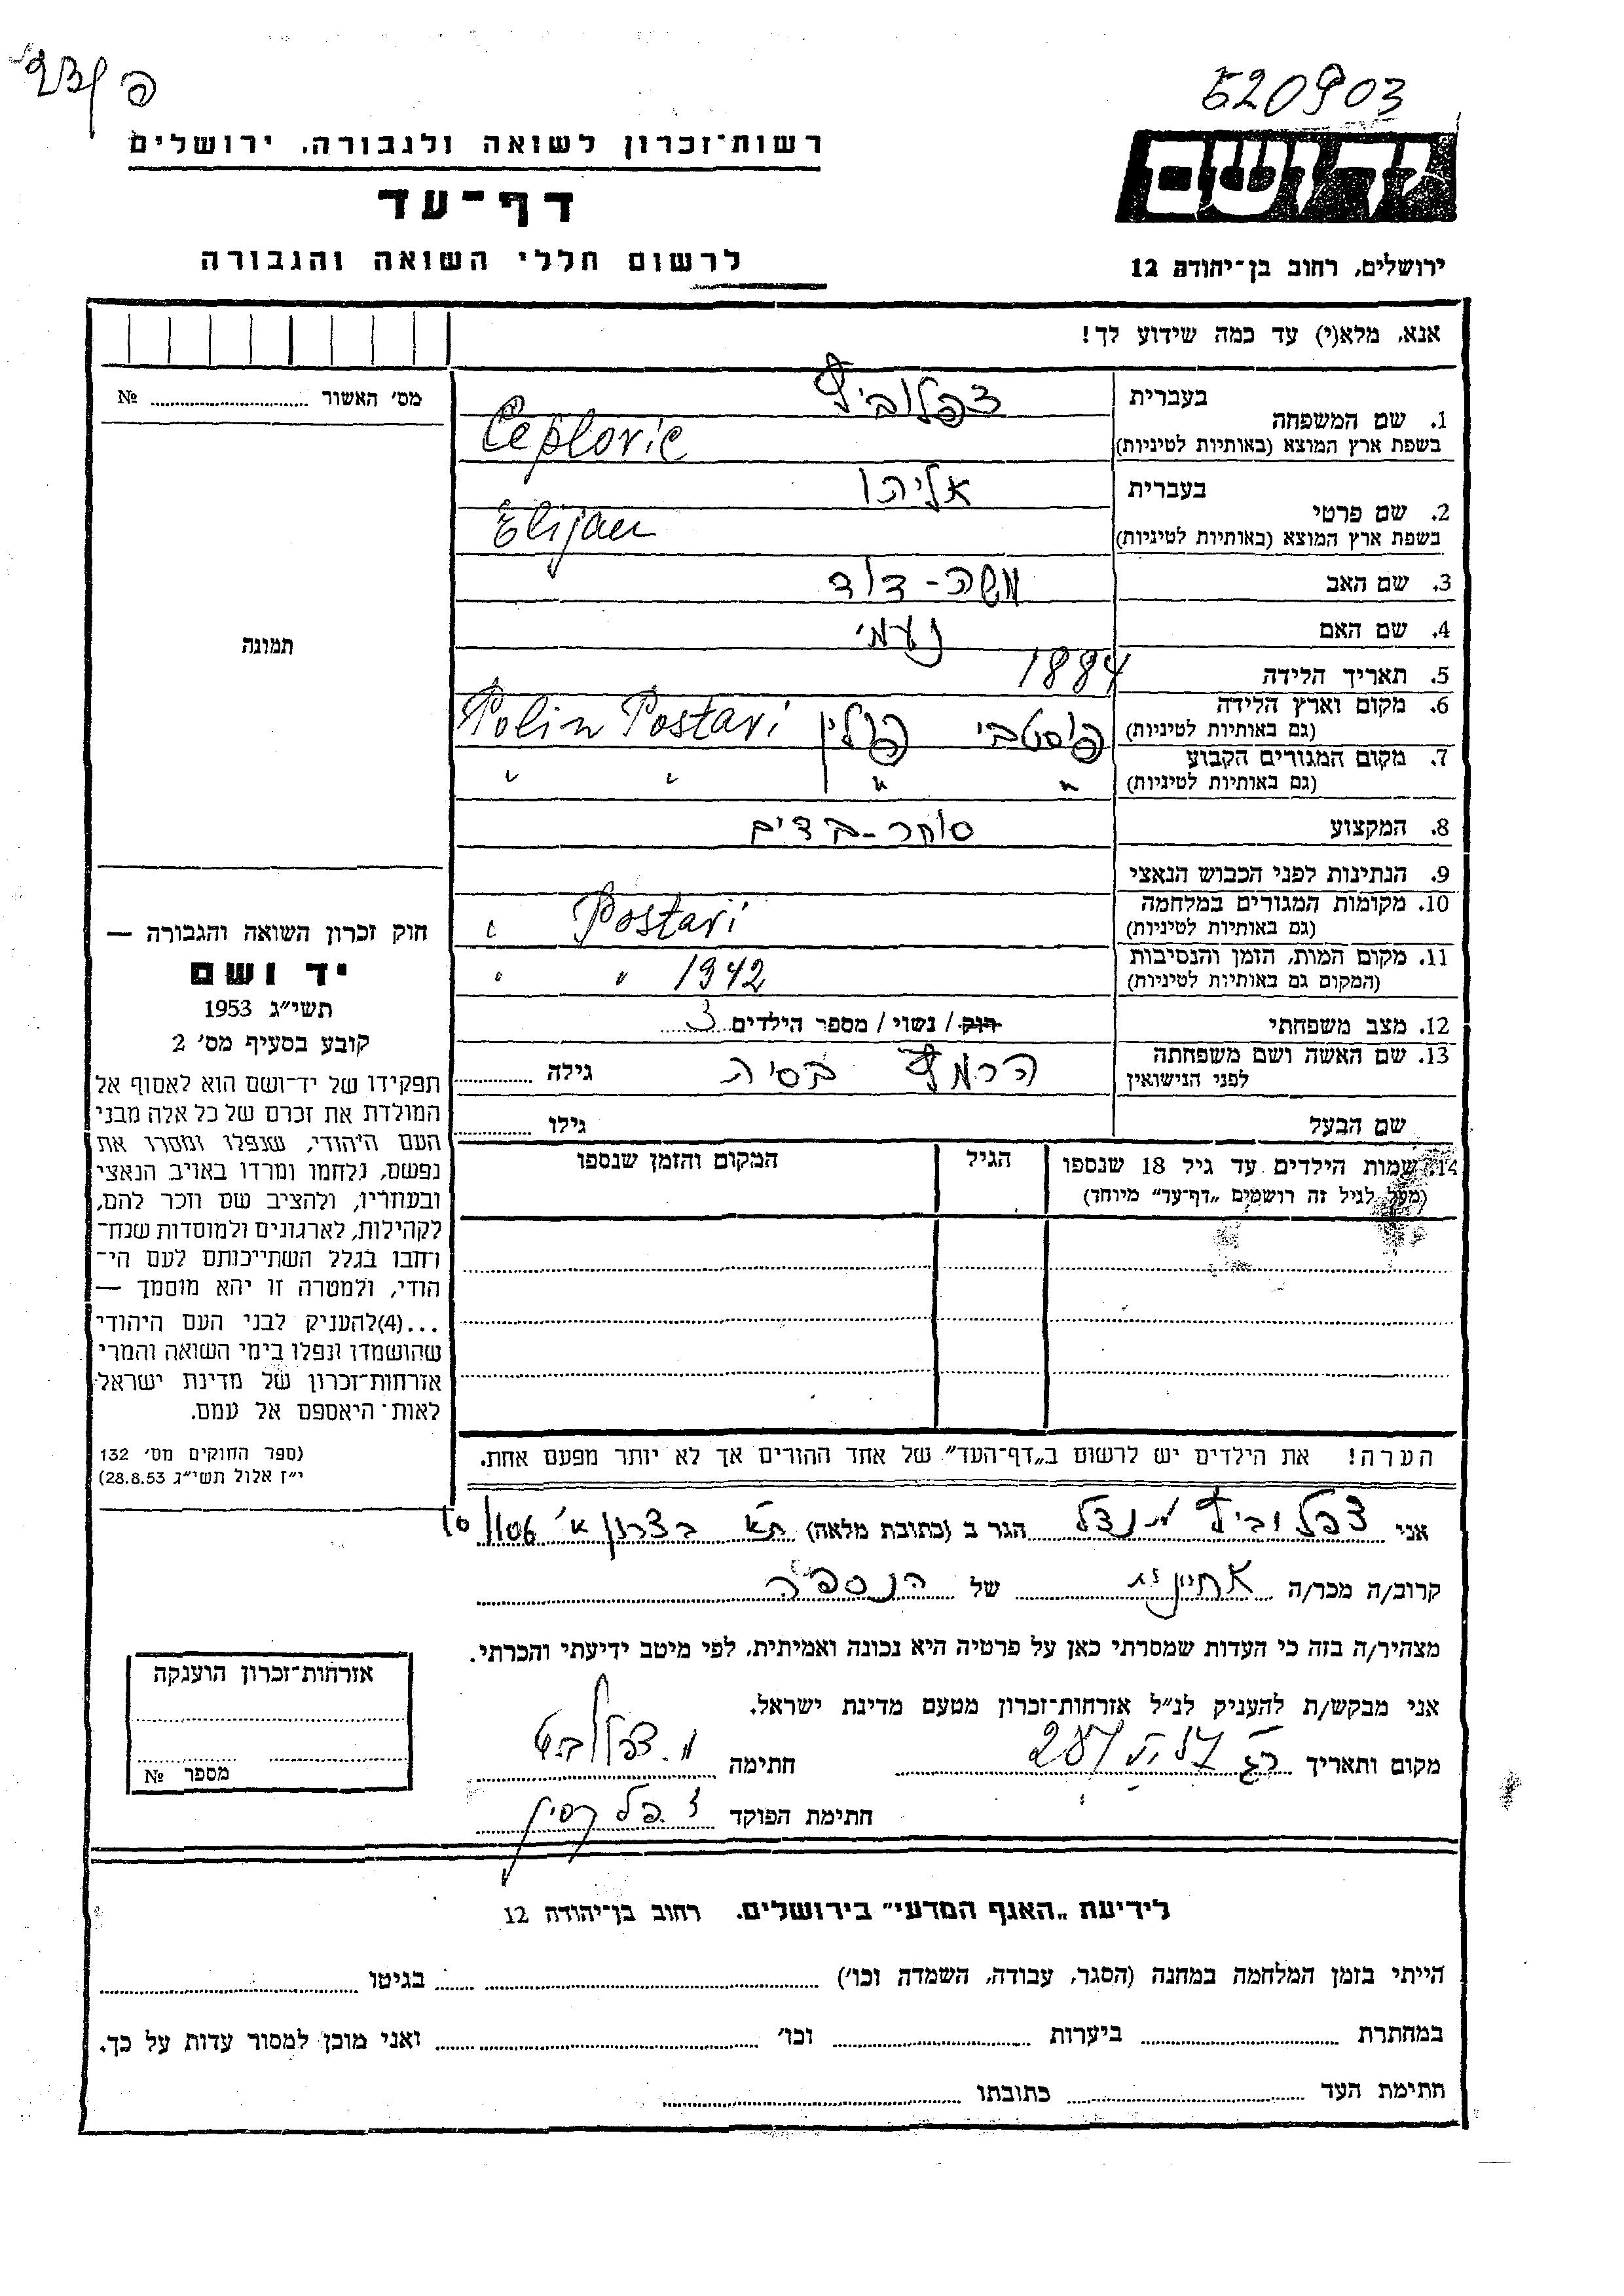 520903
רשות־זכרון לשואה ולגבורה, ירושלים
דף־עד
לרשום חללי השואה והגבורה
ירושלים, רחוב בן־יהודה 12
אנא, מלא(י) עד כמה שידוע לך!
מס׳ האשור № 
בעברית צפלוביץ
1. שם המשפחה
בשפת ארץ המוצא (באותיות לטיניות) Ceplovic
בעברית אליהו
2. שם פרטי
בשפת ארץ המוצא (באותיות לטיניות) Elijau
3. שם האב משה-דוד
4. שם האם נעמי
תמונה
5. תאריך הלידה 1884
6. מקום וארץ הלידה
(גם באותיות לטיניות) פוסטבי פולין Polin Postavi
7. מקום המגורים הקבוע
(גם באותיות לטיניות) " " " "
8. המקצוע סוחר-בדים
9. הנתינות לפני הכבוש הנאצי
10. מקומות המגורים במלחמה
(גם באותיות לטיניות) Postavi "
11. מקום המות, הזמן והנסיבות
(המקום גם באותיות לטיניות) 1942 " "
12. מצב משפחתי רווק / נשוי / מספר הילדים 3
13. שם האשה ושם משפחתה
לפני הנישואין בסיה גילה
שם הבעל גילו
14. שמות הילדים עד גיל 18 שנספו
(מעל לגיל זה רושמים „דף־עד״ מיוחד)
הגיל
המקום והזמן שנספו
חוק זכרון השואה והגבורה —
יד ושם
תשי״ג 1953
קובע בסעיף מס׳ 2
תפקידו של יד־ושם הוא לאסוף אל
המולדת את זכרם של כל אלה מבני
העם היהודי, שנפלו ומסרו את
נפשם, נלחמו ומרדו באויב הנאצי
ובעוזריו, ולהציב שם וזכר להם,
לקהילות, לארגונים ולמוסדות שנח־
רחבו בגלל השתייכותם לעם הי־
הודי, ולמטרה זו יהא מוסמך —
...(4) להעניק לבני העם היהודי
שהושמדו ונפלו בימי השואה והמרי
אזרחות־זכרון של מדינת ישראל
לאות היאספם אל עמם.
(ספר החוקים מס׳ 132
י״ז אלול תשי״ג 28.8.53)
הערה! את הילדים יש לרשום ב„דף־העד״ של אחד ההורים אך לא יותר מפעם אחת.
אני צפלוביץ מנדל הגר ב (כתובת מלאה) ת״א בצרון א׳
קרוב/ה מכר/ה של הנספה
מצהיר/ה בזה כי העדות שמסרתי כאן על פרטיה היא נכונה ואמיתית, לפי מיטב ידיעתי והכרתי.
אני מבקש/ת להעניק לנ״ל אזרחות־זכרון מטעם מדינת ישראל.
מקום ותאריך חתימה
חתימת הפוקד
אזרחות־זכרון הוענקה
מספר №
לידיעת „האגף המדעי״ בירושלים, רחוב בן־יהודה 12
הייתי בזמן המלחמה במחנה (הסגר, עבודה, השמדה וכו׳) בגיטו
במחתרת ביערות וכו׳ ואני מוכן למסור עדות על כך.
חתימת העד כתובתו